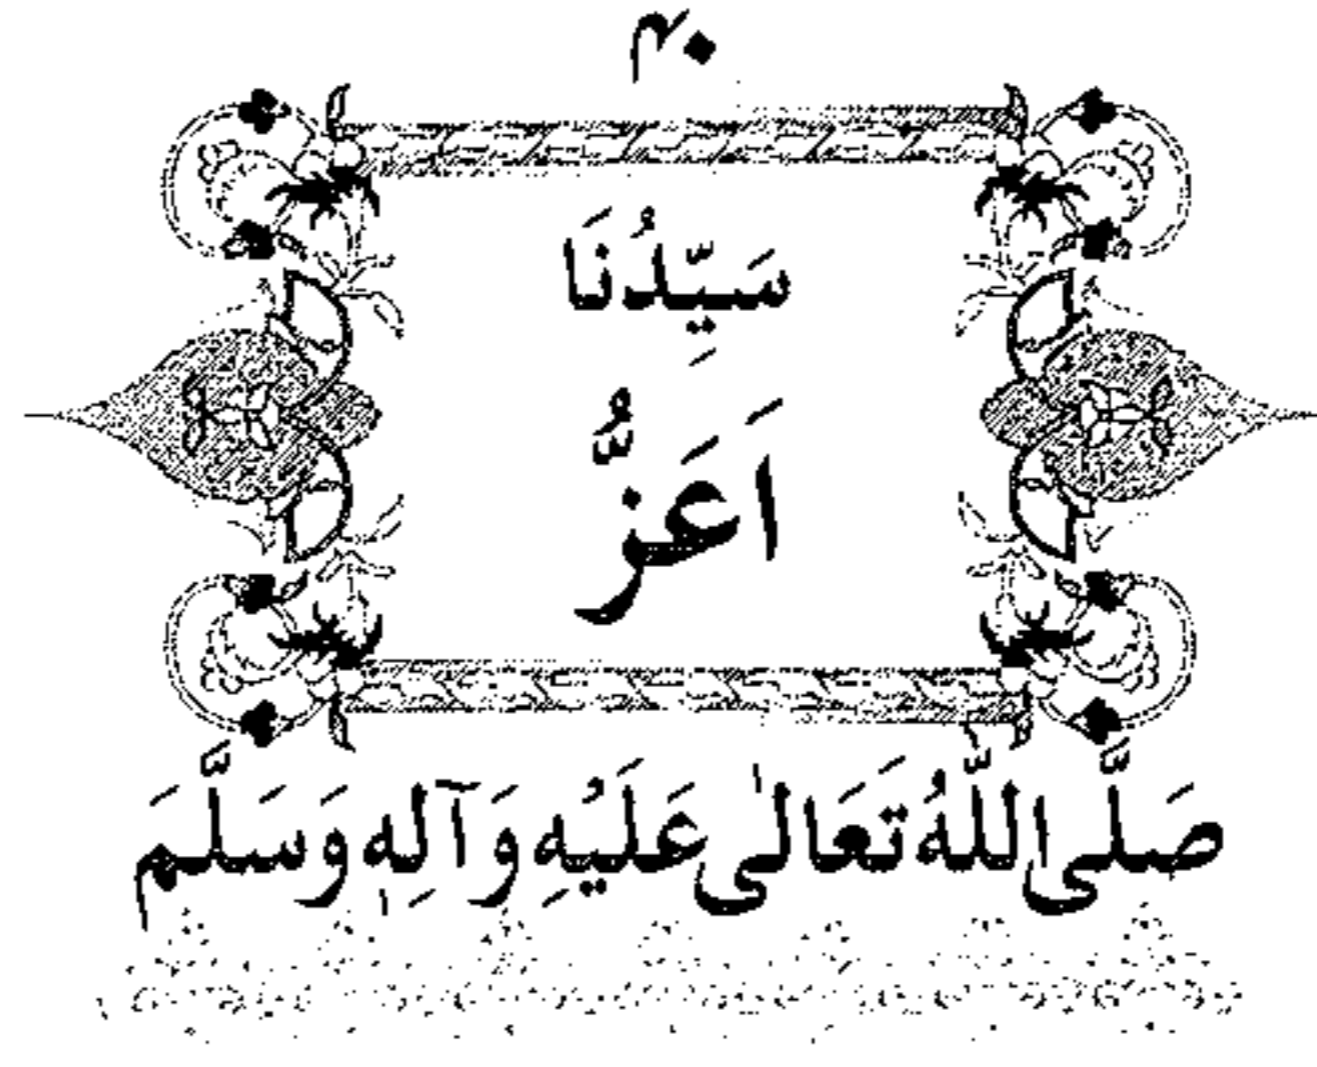 ۴۰
سَيِّدُنَا
اَعَزُّ
صَلَّى اللّٰهُ تَعَالٰى عَلَيْهِ وَآلِهٖ وَسَلَّمَ